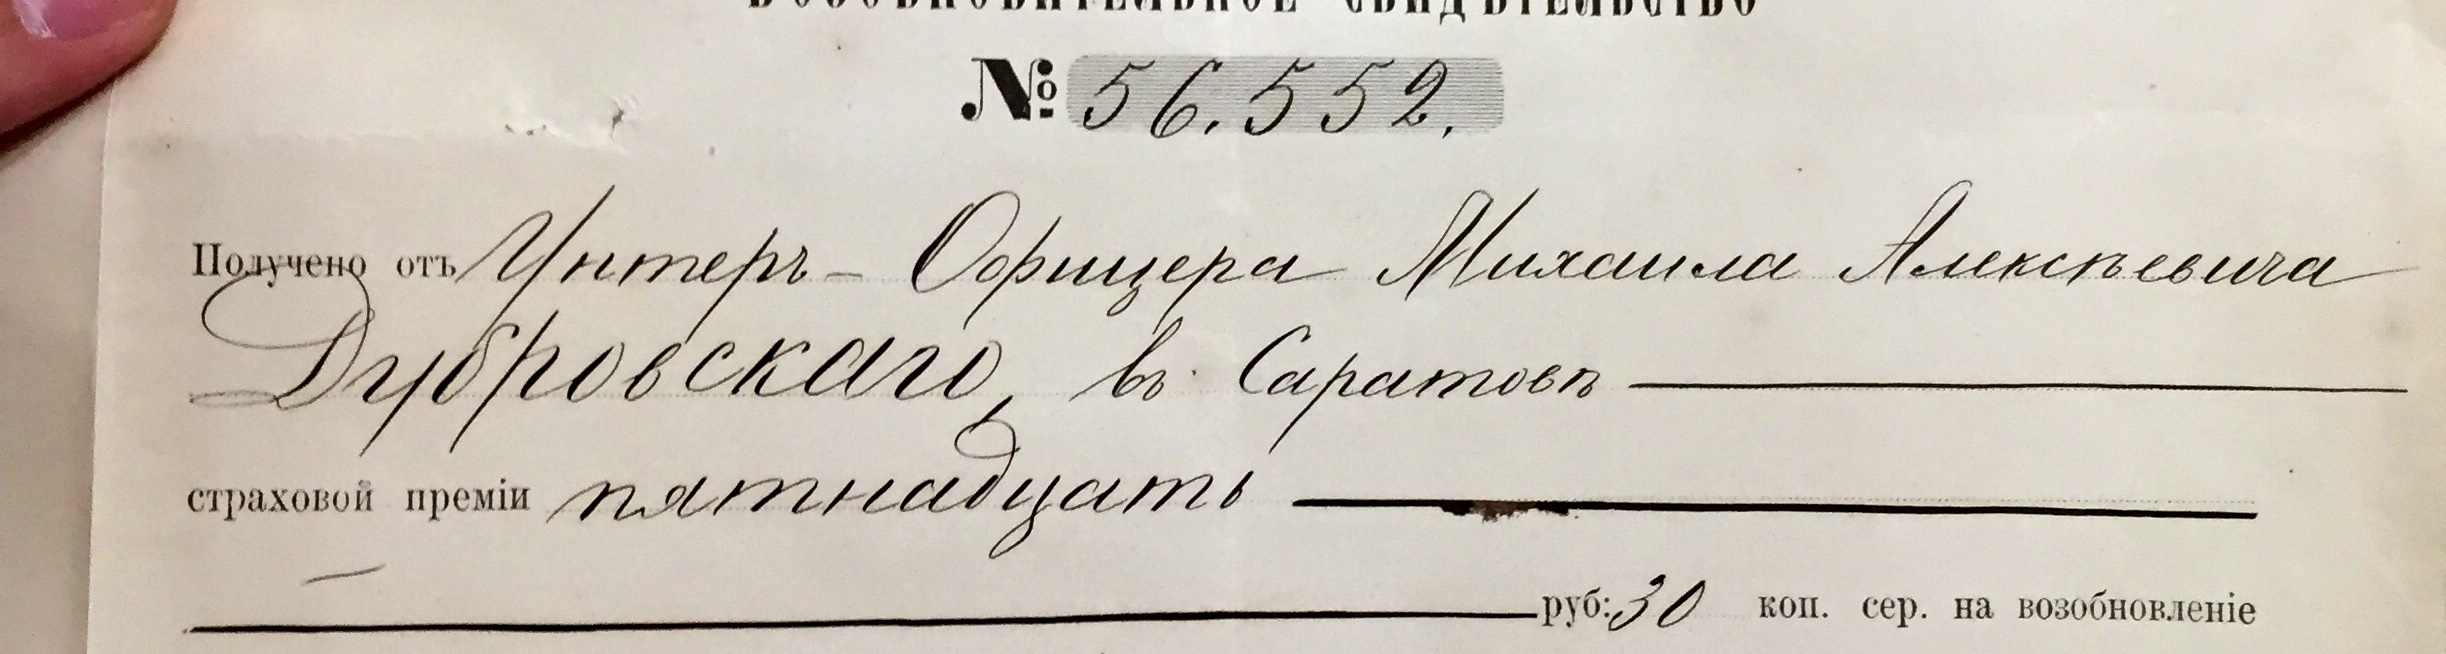 ВОЗОБНОВИТЕЛЬНОЕ СВИДѢТЕЛЬСТВО
№ 56.552.
Получено отъ Унтеръ-Офицера Михаила Алексѣевича
Дубровскаго, въ Саратовѣ
страховой преміи пятнадцать
руб: 30 коп. сер. на возобновленіе